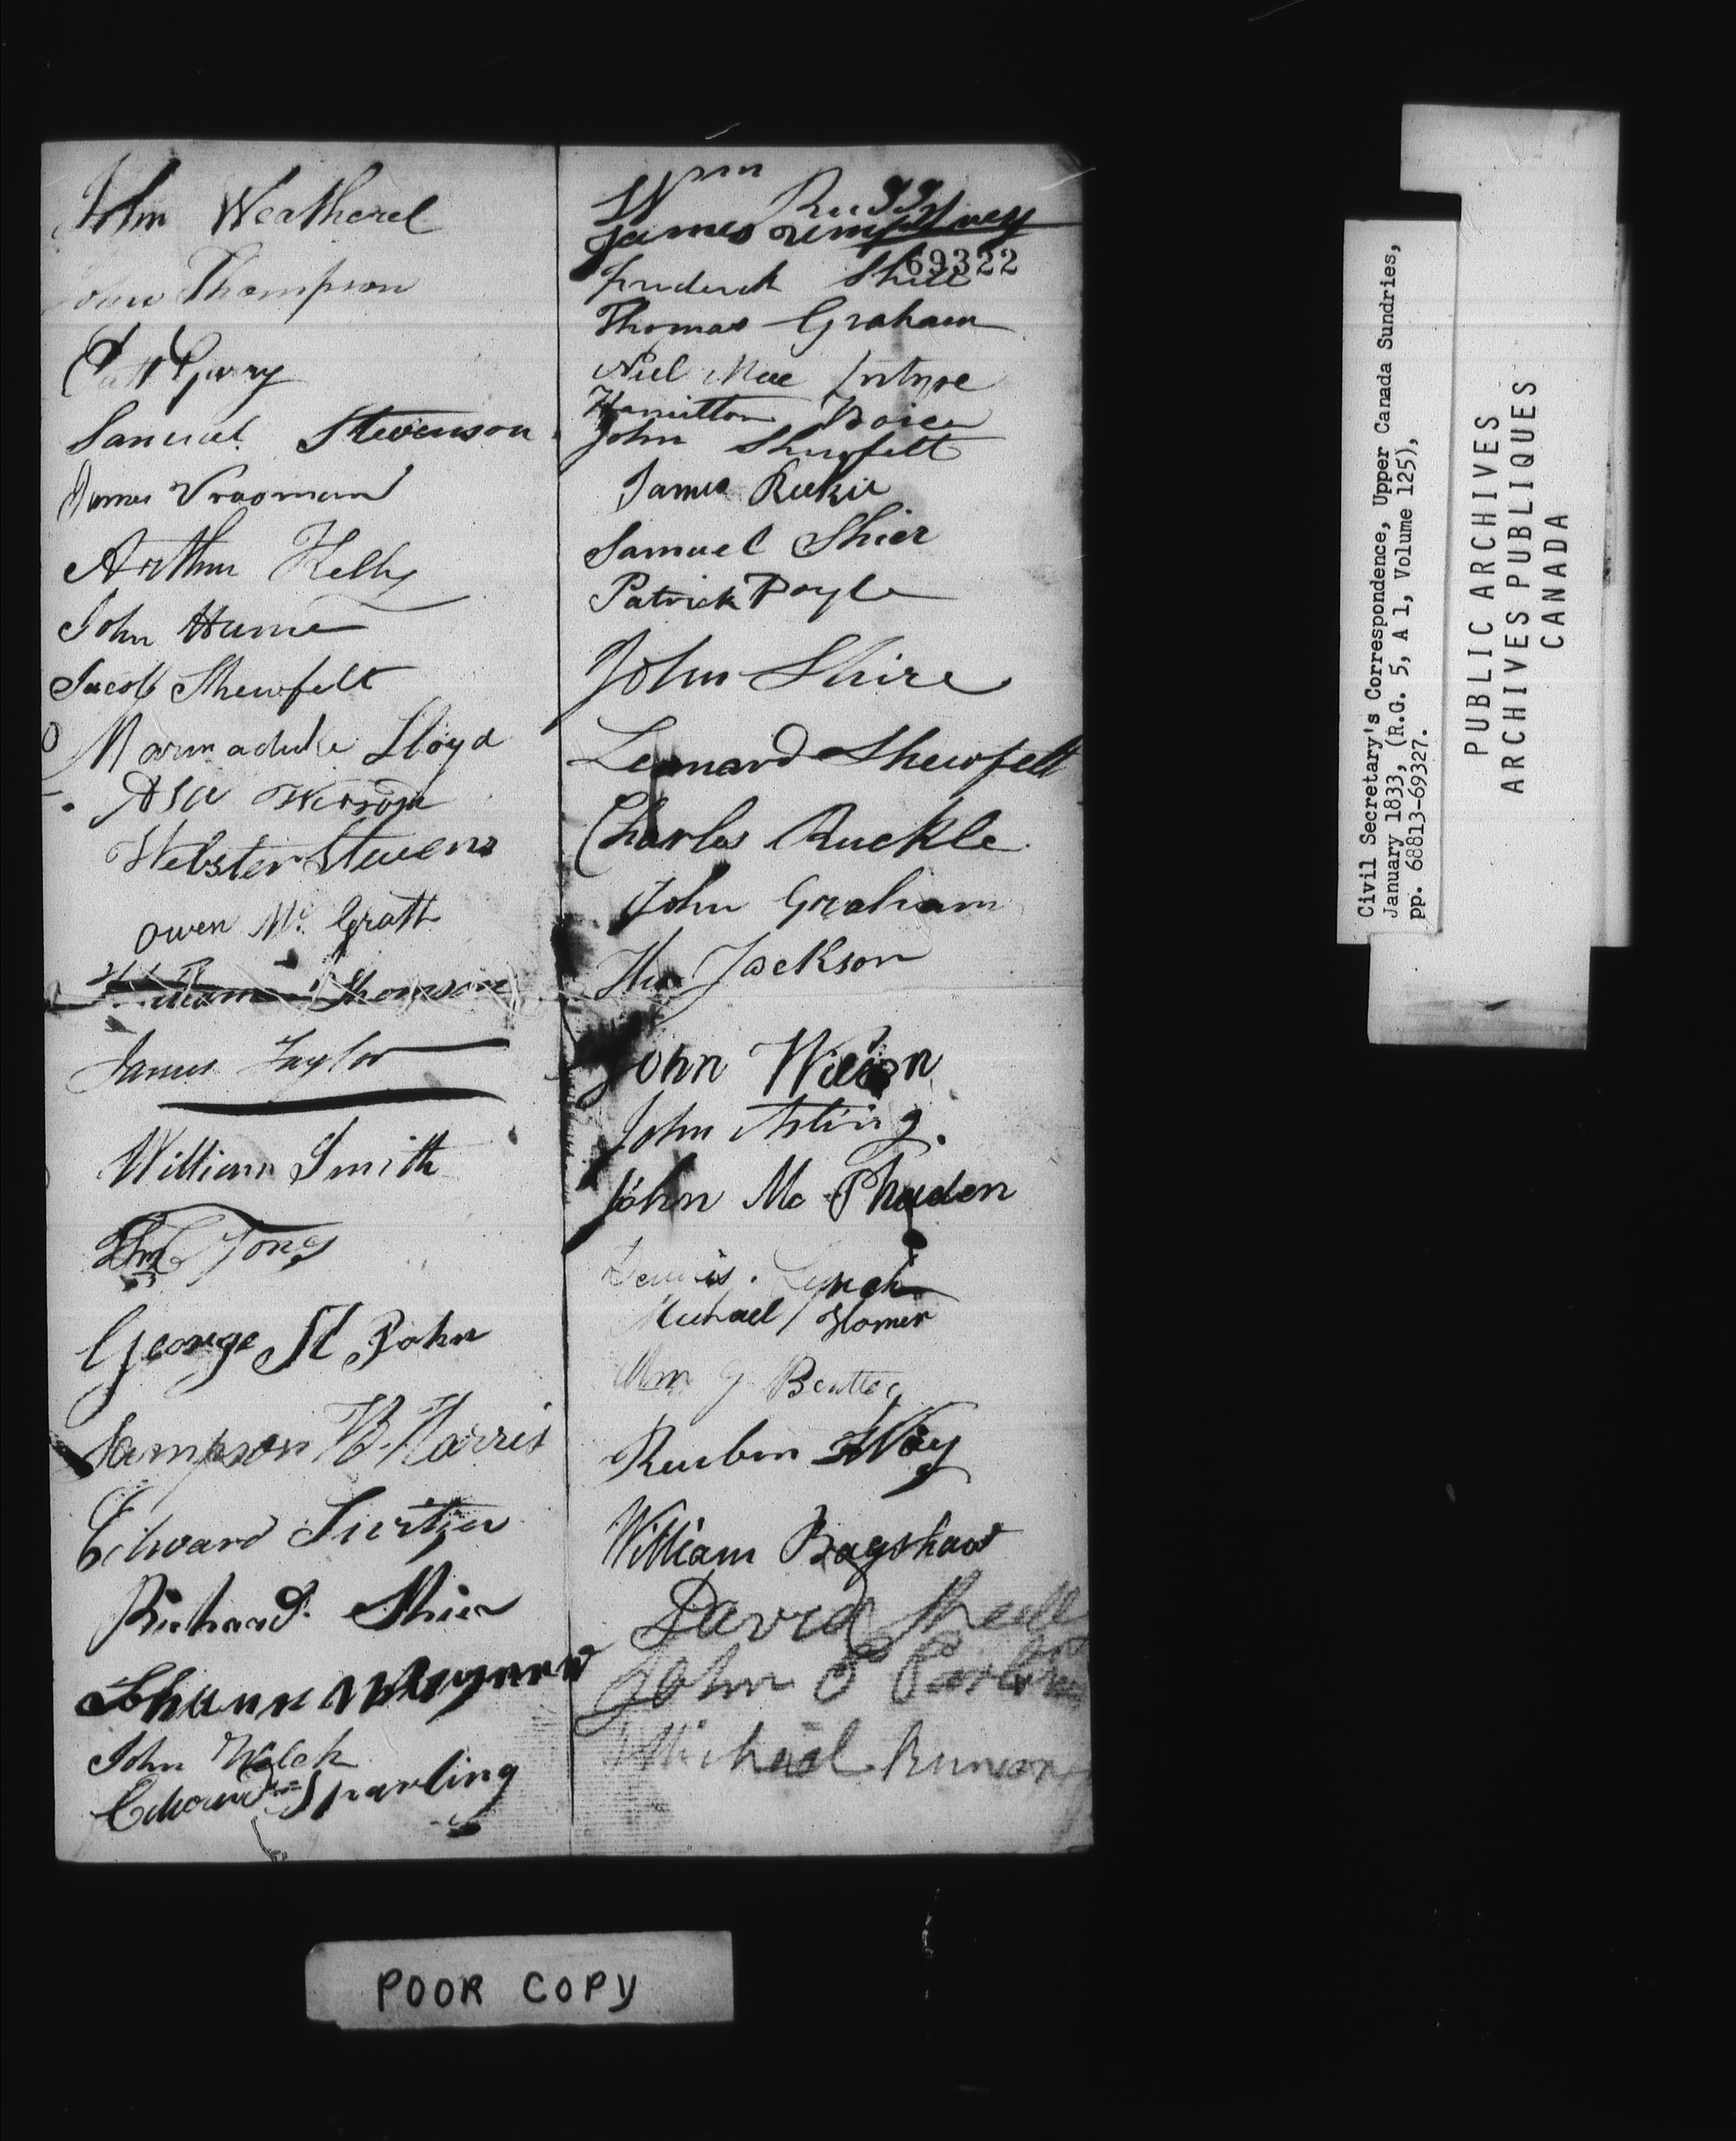 John Weatherel
John Thompson
Patt Garry
Samuel Stevenson
James Vrooman
Arthur Kelly
John Hume
Jacob Shewfelt
Marmaduke Lloyd
Asa
Webster Stevens
Owen Mc Grath
William Thomson
James Taylor
William Smith
Jones
George St John
Sampson B. Harris
Edward Switzer
Richard Shier
John Welch
Edward Sparling
Wm
James
69322
Frederick
Thomas Graham
Niel Mac Intyre
Hamilton
John Shewfelt
James
Samuel Shier
Patrick Doyle
John Shire
Leonard Shewfelt
Charles Ruckle
John Graham
Jackson
John Wilson
John Asling.
John Mc Phaden
Lynch
Michael Homer
Wm
Reuben Way
William Bagshaw
David
John
Michael
POOR COPY
Civil Secretary's Correspondence, Upper Canada Sundries,
January 1833, (R.G. 5, A 1, Volume 125),
pp. 68813-69327.
PUBLIC ARCHIVES
ARCHIVES PUBLIQUES
CANADA